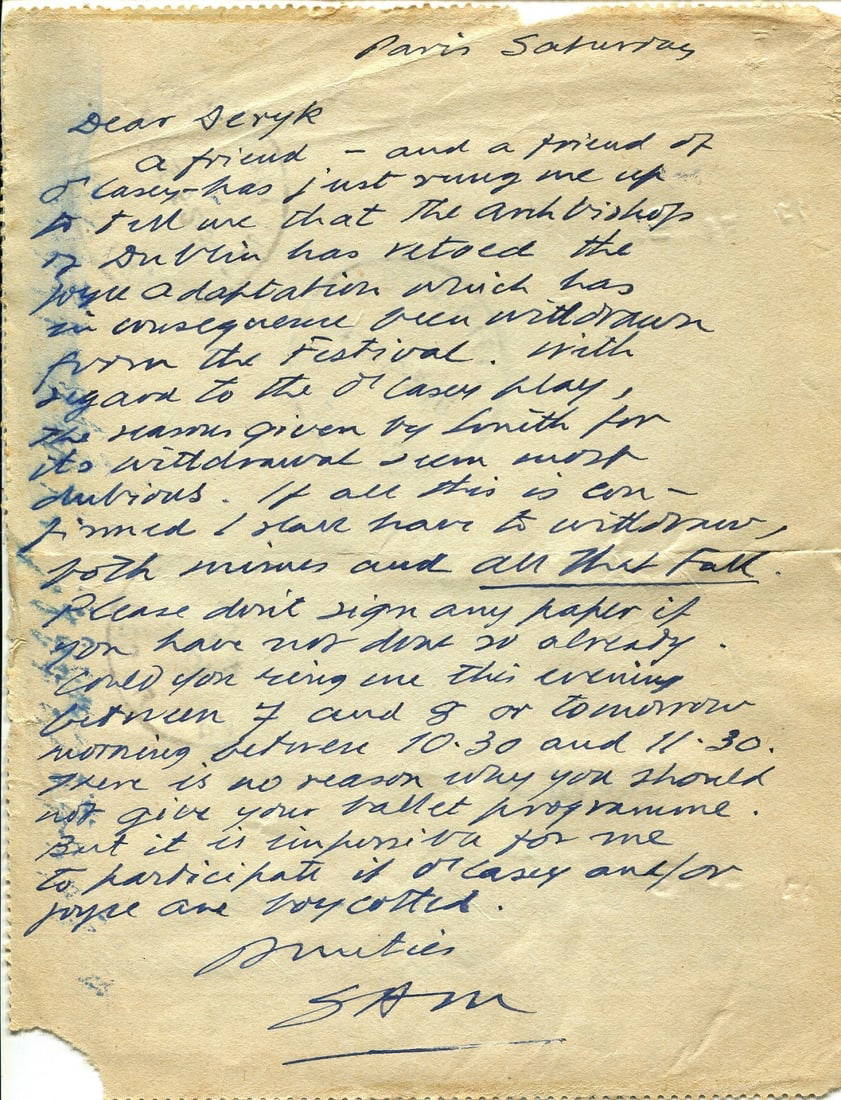 Paris Saturday
Dear Deryk
A friend – and a friend of
O'Casey – has just rung me up
to tell me that the Archbishop
of Dublin has vetoed the
Joyce adaptation which has
in consequence been withdrawn
from the Festival. With
regard to the O'Casey play,
the reasons given by Smith for
its withdrawal seem most
dubious. If all this is con-
firmed I shall have to withdraw,
both mimes and All That Fall.
Please don't sign any paper if
you have not done so already.
Could you ring me this evening
between 7 and 8 or tomorrow
morning between 10.30 and 11.30.
There is no reason why you should
not give your ballet programme.
But it is impossible for me
to participate if O'Casey and/or
Joyce are boycotted.
Amitiés
Sam